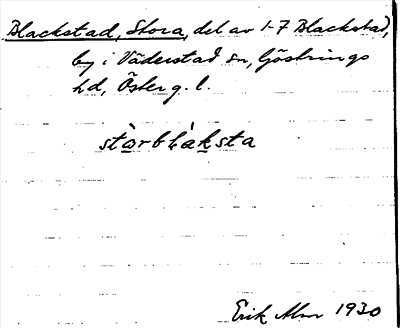 Blackstad, Stora, del av 1-7 Blackstad,
by i Väderstad sn, Göstrings
hd, Österg. l.
stàrblàksta
Erik Alm 1930